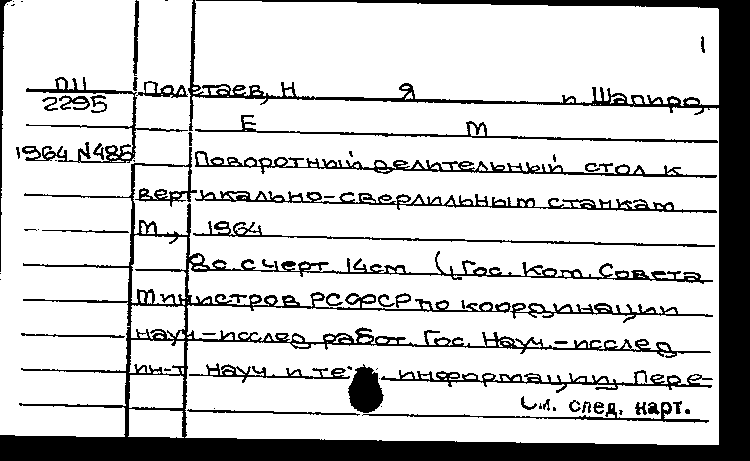 1
ПИ Полетаев, Н Я и Шапиро,
2295
Е М
1964 №485 Поворотный делительный стол к
вертикально-сверлильным станкам
М., 1964
8с. с черт. 14см. (Гос. Ком. Совета
Министров РСФСР по координации
науч.-исслед. работ. Гос. Науч.-исслед.
ин-т науч. и информации, Пере-
См. след. карт.